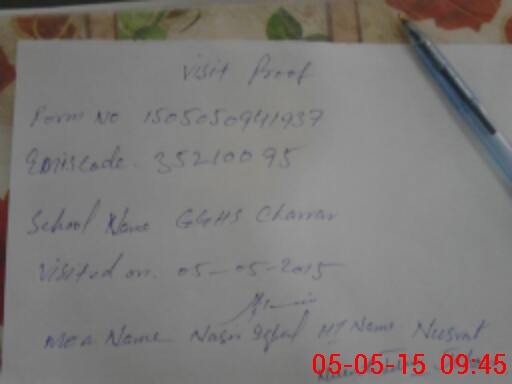 Visit Proof
Form No 1505050941937
EmisCode. 35210095
School Name GGHS Charrar
Visited on. 05-05-2015
MEA Name Nasir Iqbal HT Name Nusrat
05-05-15 09:45